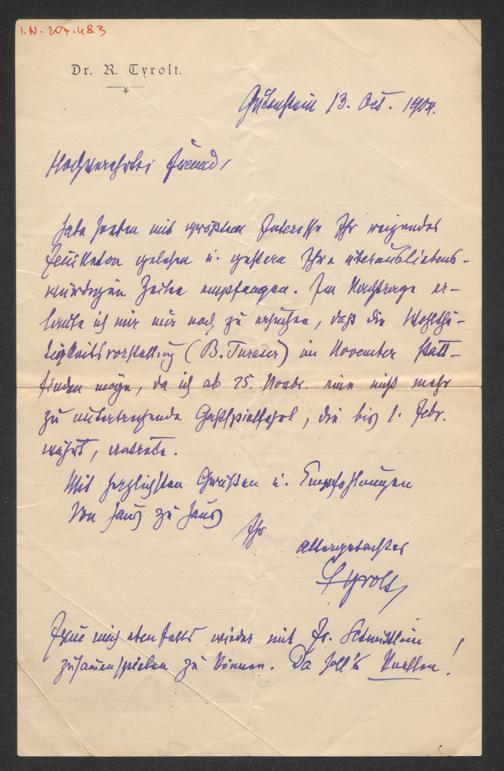 I.N. 207.483
Dr. R. Tyrolt.
Gutenstein 13. Oct. 1904.
Hochverehrter Freund,
Habe soeben mit größtem Interesse Ihr reizendes
Feuilleton gelesen u. gestern Ihre überausliebens-
würdigen Zeilen empfangen. Im Nachtrage er-
laube ich mir nur noch zu ersuchen, daß die Wohlthä-
tigkeitsvorstellung (B. Theater) im November statt-
finden möge, da ich ab 25. Novbr. eine nicht mehr
zu unterbrechende Gastspieltour, die bis 1. Febr.
währt, antrete.
Mit herzlichsten Grüßen u. Empfehlungen
von Haus zu Haus
Ihr
altergebener
Tyrolt
Freue mich ebenfalls wieder mit Fr. Schmittlein
zusammenspielen zu können. Da soll's knallen!